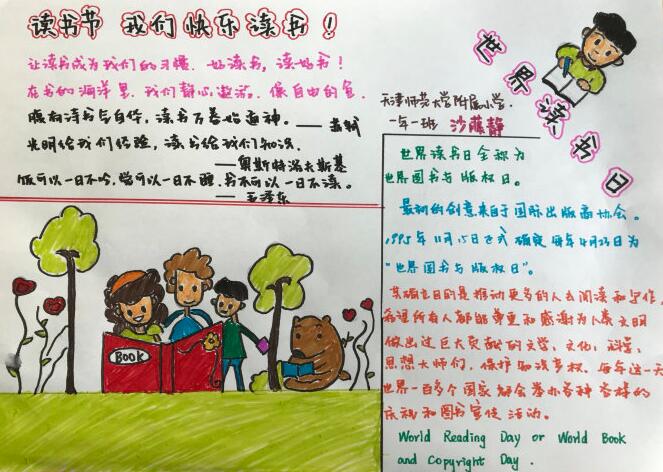 读书节 我们快乐读书！
让读书成为我们的习惯，好读书，读好书！
在书的海洋里，我们静心遨游，像自由的鱼
腹有诗书气自华，读书万卷始通神。——苏轼
光明给我们经验，读书给我们知识。
——奥斯特洛夫斯基
饭可以一日不吃，觉可以一日不睡，书不可以一日不读。
——毛泽东
世界读书日
天津师范大学附属小学
一年一班 沙藤静
世界读书日全称为
世界图书与版权日。
最初的创意来自于国际出版商协会。
1995年11月15日正式确定每年4月23日为
"世界图书与版权日"。
其确立目的是推动更多的人去阅读和写作，
希望所有人都能尊重和感谢为人类文明
做出过巨大贡献的文学、文化、科学、
思想大师们，保护知识产权。每年这一天
世界一百多个国家都会举办各种各样的
庆祝和图书宣传活动。
World Reading Day or World Book
and Copyright Day.
BOOK